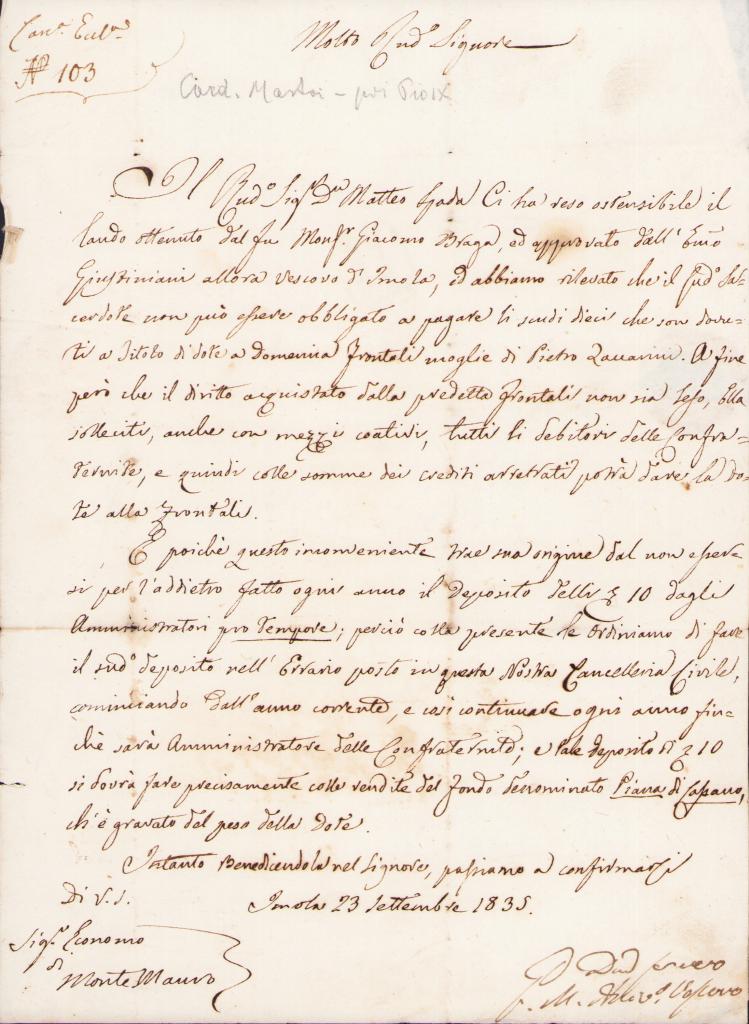 Canc. Eccl.
N° 103
Molto Rndo Signore
Card. Mastai - poi Pio IX
Il Rndo Sigr Dn Matteo Spada Ci ha reso ostensibile il
laudo ottenuto dal fu Monsr Giacomo Braga, ed approvato dall' Emo
Giustiniani allora Vescovo d' Imola, ed abbiamo rilevato che il sudo Sa-
cerdote non può essere obbligato a pagare li scudi dieci che son dovu-
ti a titolo di dote a Domenica Frontali moglie di Pietro Zaccarini. A fine
però che il diritto acquistato dalla predetta Frontali non sia leso, Ella
solleciti, anche con mezzi coativi, tutti li debitori delle Confra-
ternite, e quindi colle somme dei crediti arretrati potrà dare la do-
te alla Frontali.
E poichè questo inconveniente trae sua origine dal non esser-
si per l'addietro fatto ogni anno il Deposito delli 10 dagli
Amministratori pro tempore; perciò colla presente le Ordiniamo di fare
il sudo deposito nell' Errario posto in questa Nostra Cancelleria Civile,
cominciando dall' anno corrente, e così continuare ogni anno fin-
chè sarà Amministratore delle Confraternite; e tale deposito di 10
si dovrà fare precisamente colle rendite del fondo denominato Piana di Cassano,
ch'è gravato del peso della Dote.
Intanto Benedicendola nel Signore, passiamo a confirmarsi
Di V.S. Imola 23 Settembre 1835.
Sigr Economo
di
Monte Mauro
G. M. Arcivo Vescovo